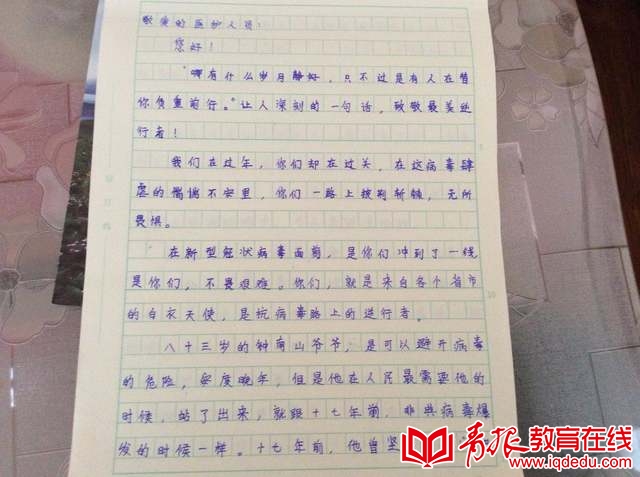 敬爱的医护人员：
您好！
"哪有什么岁月静好，只不过是有人在替
你负重前行。"让人深刻的一句话，致敬最美逆
行者！
我们在过年，你们却在过关，在这病毒肆
虐的惴惴不安里，你们一路上披荆斩棘，无所
畏惧。
在新型冠状病毒面前，是你们冲到了一线
是你们，不畏艰难。你们，就是来自各个省市
的白衣天使，是抗病毒路上的逆行者。
八十三岁的钟南山爷爷，是可以避开病毒
的危险，安度晚年，但是他在人民最需要他的
时候，站了出来，就跟十七年前，非典病毒爆
发的时候一样。十七年前，他曾坚
青报教育在线
www.iqdedu.com